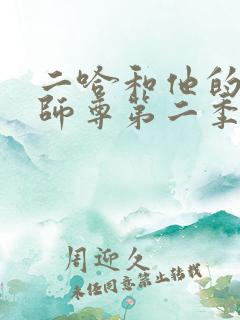 二哈和他的
師尊第二季
周迎久
未經同意禁止轉載